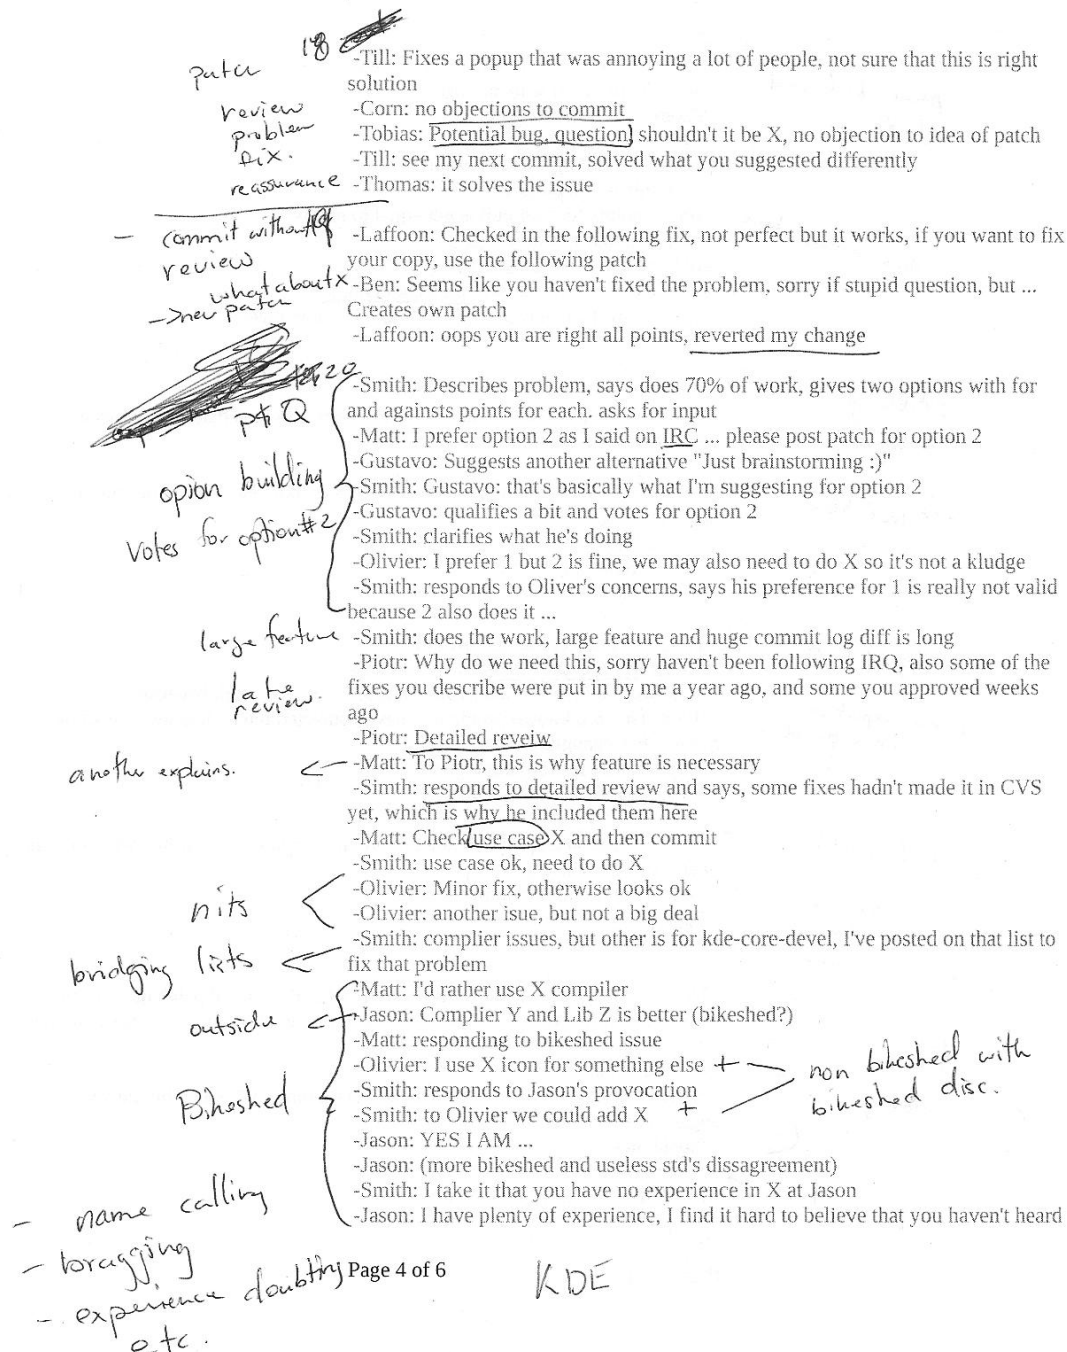 18
-Till: Fixes a popup that was annoying a lot of people, not sure that this is right
patch
solution
review
-Corn: no objections to commit
problem
-Tobias: Potential bug, question, shouldn't it be X, no objection to idea of patch
fix.
-Till: see my next commit, solved what you suggested differently
reassurance
-Thomas: it solves the issue
- commit without
-Laffoon: Checked in the following fix, not perfect but it works, if you want to fix
review
your copy, use the following patch
what about x
-Ben: Seems like you haven't fixed the problem, sorry if stupid question, but ...
->new patch
Creates own patch
-Laffoon: oops you are right all points, reverted my change
20
-Smith: Describes problem, says does 70% of work, gives two options with for
and againsts points for each. asks for input
Q
-Matt: I prefer option 2 as I said on IRC ... please post patch for option 2
-Gustavo: Suggests another alternative "Just brainstorming :)"
opion building
-Smith: Gustavo: that's basically what I'm suggesting for option 2
-Gustavo: qualifies a bit and votes for option 2
Votes for option#2
-Smith: clarifies what he's doing
-Olivier: I prefer 1 but 2 is fine, we may also need to do X so it's not a kludge
-Smith: responds to Oliver's concerns, says his preference for 1 is really not valid
because 2 also does it ...
large feature
-Smith: does the work, large feature and huge commit log diff is long
-Piotr: Why do we need this, sorry haven't been following IRQ, also some of the
late
fixes you describe were put in by me a year ago, and some you approved weeks
review.
ago
-Piotr: Detailed reveiw
another explains.
-Matt: To Piotr, this is why feature is necessary
-Simth: responds to detailed review and says, some fixes hadn't made it in CVS
yet, which is why he included them here
-Matt: Check use case X and then commit
-Smith: use case ok, need to do X
-Olivier: Minor fix, otherwise looks ok
nits
-Olivier: another isue, but not a big deal
-Smith: complier issues, but other is for kde-core-devel, I've posted on that list to
bridging lists
fix that problem
-Matt: I'd rather use X compiler
outside
-Jason: Complier Y and Lib Z is better (bikeshed?)
-Matt: responding to bikeshed issue
-Olivier: I use X icon for something else +
non bikeshed with
bikeshed disc.
Bikeshed
-Smith: responds to Jason's provocation
-Smith: to Olivier we could add X +
-Jason: YES I AM ...
-Jason: (more bikeshed and useless std's dissagreement)
-Smith: I take it that you have no experience in X at Jason
-Jason: I have plenty of experience, I find it hard to believe that you haven't heard
- name calling
- bragging
- experience doubting
etc.
Page 4 of 6
KDE